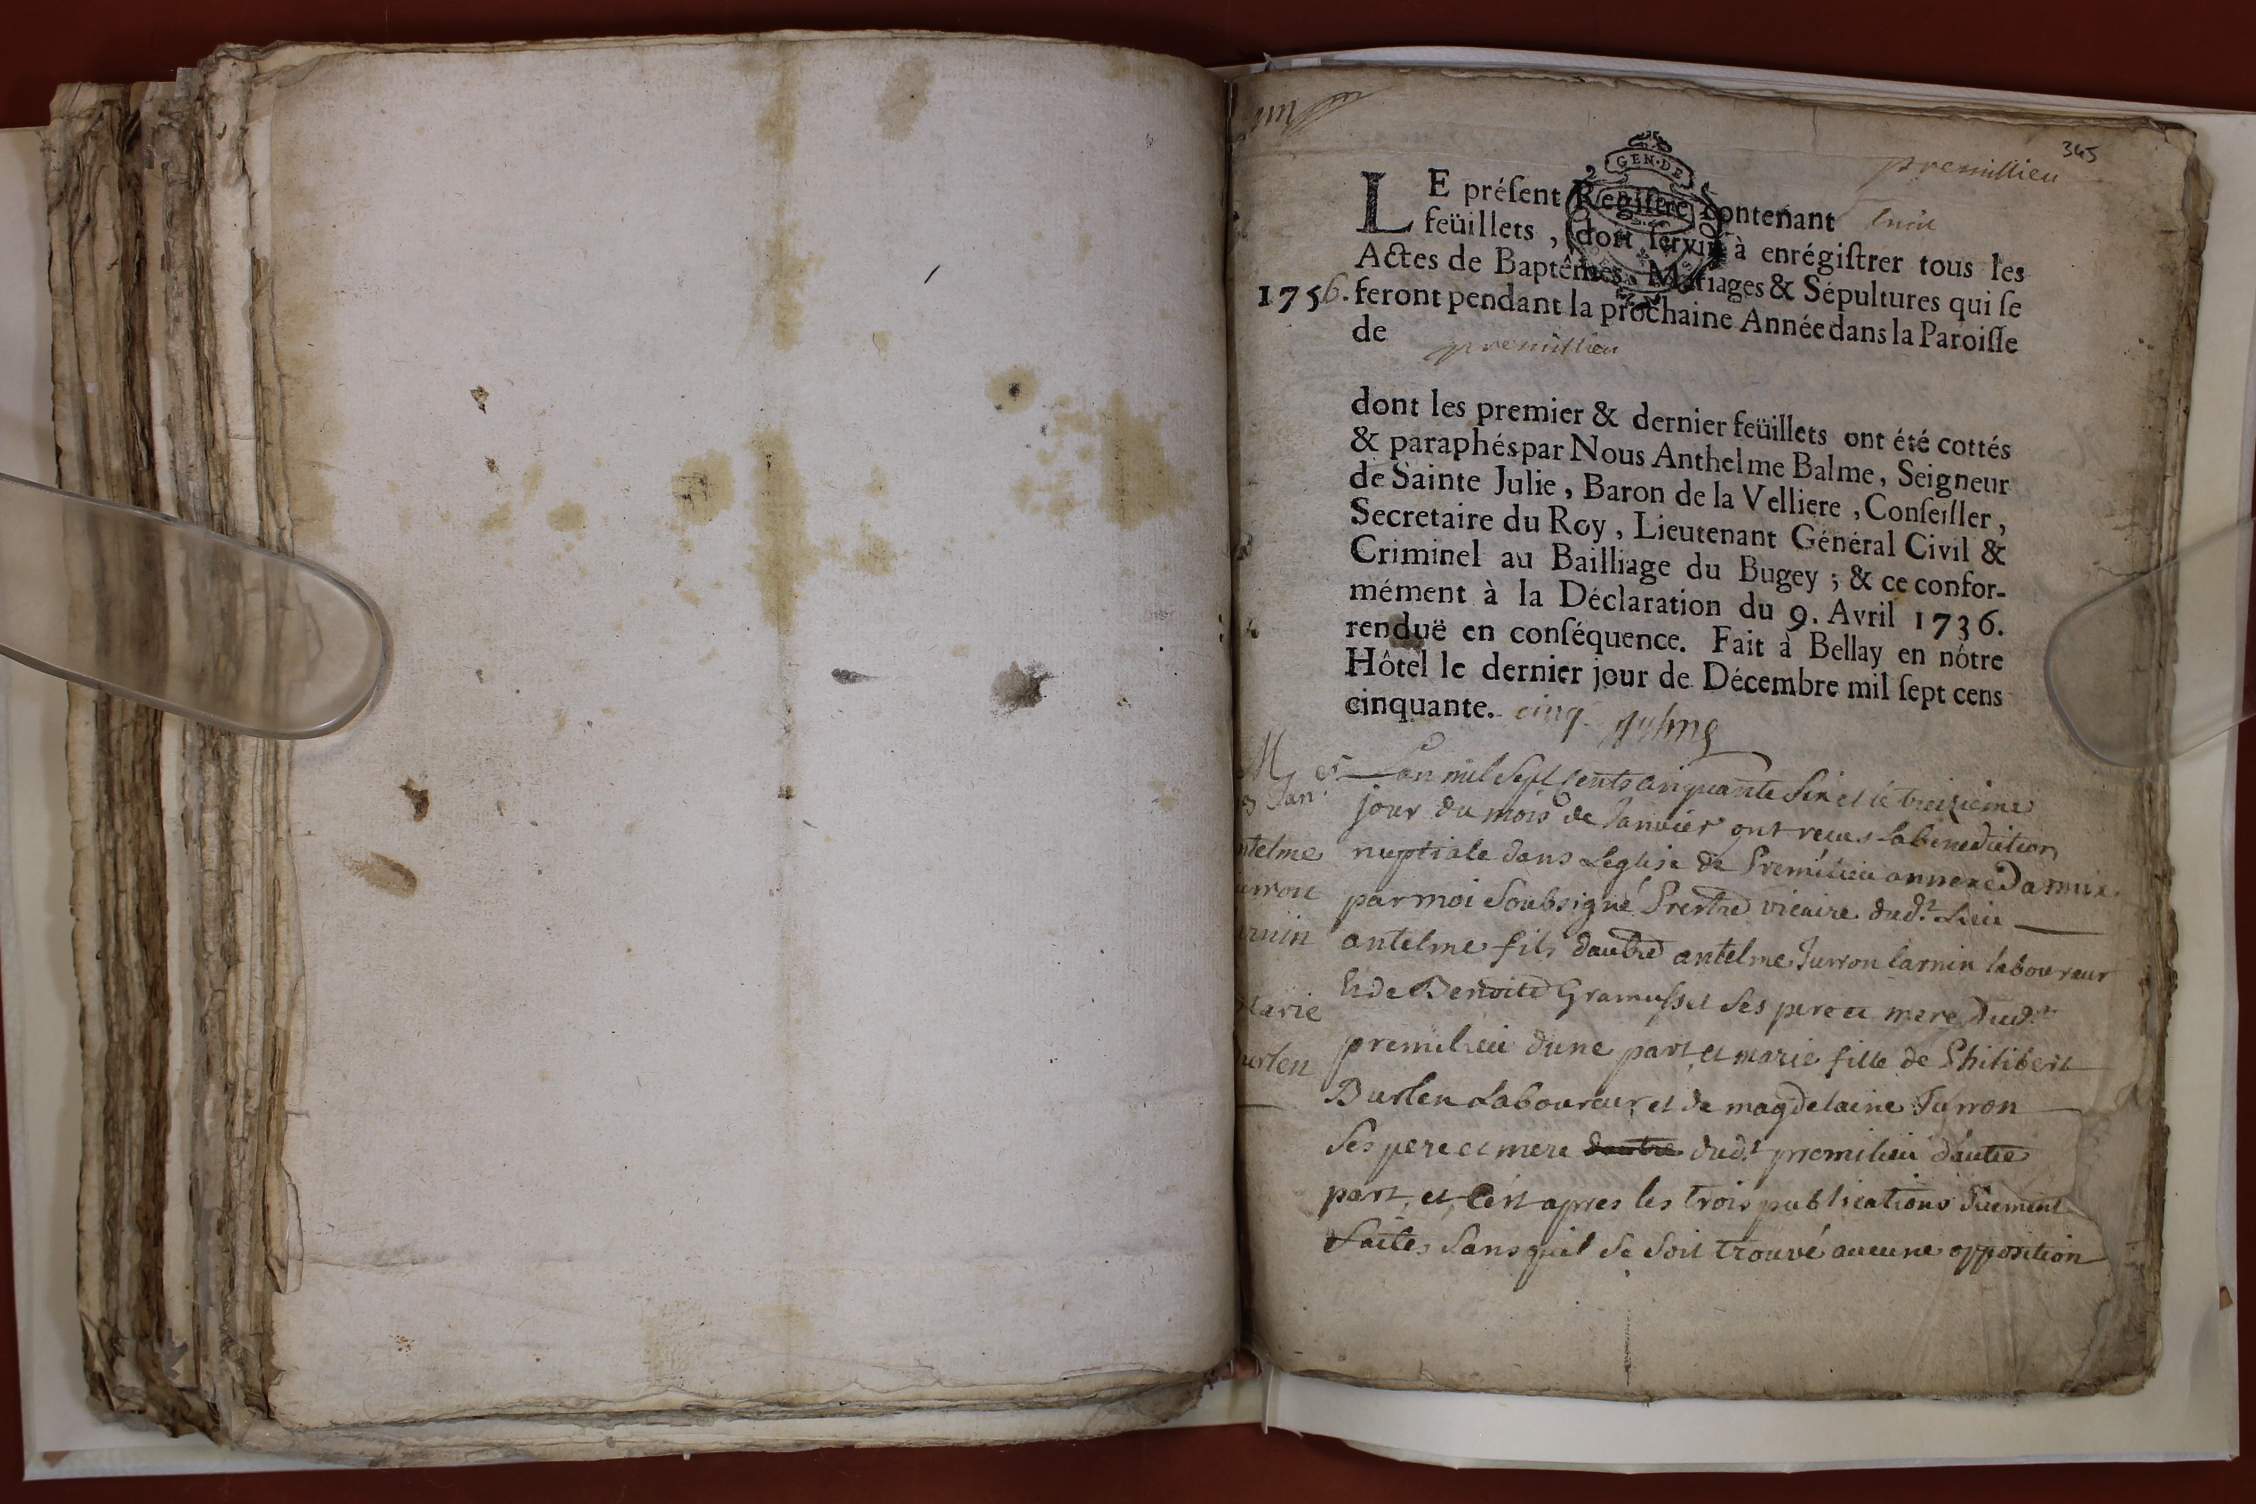 345
premillieu
GEN. DE
LE préſent Regiſtre contenant huit
feüillets, doit ſervir à enrégiſtrer tous les
Actes de Baptêmes, Mariages & Sépultures qui ſe
1756. feront pendant la prochaine Année dans la Paroiſſe
de premillieu
dont les premier & dernier feüillets ont été cottés
& paraphés par Nous Anthelme Balme, Seigneur
de Sainte Julie, Baron de la Velliere, Conſeiller,
Secretaire du Roy, Lieutenant Général Civil &
Criminel au Bailliage du Bugey ; & ce confor-
mément à la Déclaration du 9. Avril 1736.
renduë en conſéquence. Fait à Bellay en nôtre
Hôtel le dernier jour de Décembre mil ſept cens
cinquante. cinq Balme
M
Jan.
ntelme
urron
arnin
Marie
urlen
Lan mil Sept Cents cinquante Six et le treizieme
jour du mois de Janvier ont recus la benediction
nuptiale dans Leglise de Premilieu annexe Darmix
par moi Soubsigné Prestre vicaire dud.t Lieu
antelme fils dautre antelme Jurron Carnin laboureur
Et de Benoite Gramusset Ses pere et mere Dud.t
premilieu dune part et marie fille de Philibert
Burlen Laboureur et de magdelaine Jurron
Ses pere et mere dautre dud.t premilieu dautre
part, et Cest apres les trois publications duement
Faites Sans quil Se Soit trouvé aucune opposition